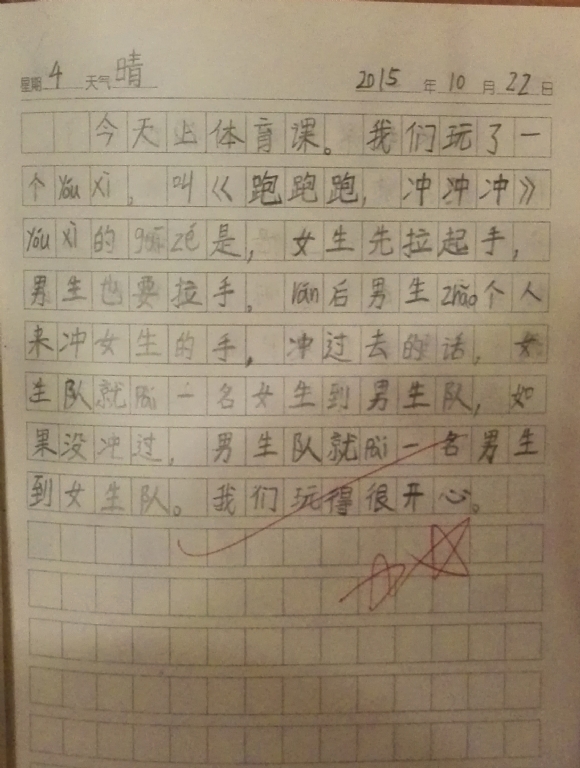 星期 4 天气 晴 2015 年 10 月 22 日
今天上体育课。我们玩了一
个yóu xì，叫《跑跑跑，冲冲冲》
yóu xì的guī zé是，女生先拉起手，
男生也要拉手。rán后男生zhǎo个人
来冲女生的手，冲过去的话，女
生队就pài一名女生到男生队，如
果没冲过，男生队就pài一名男生
到女生队。我们玩得很开心。